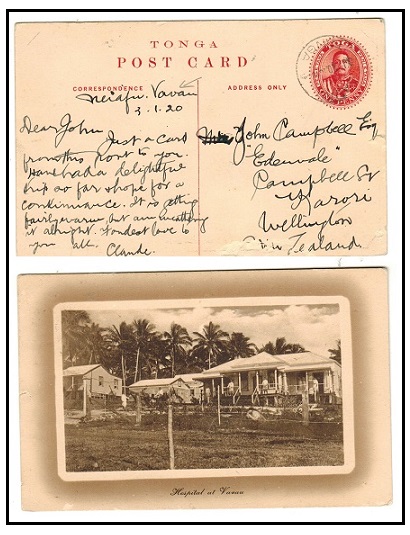 TONGA
POST CARD
CORRESPONDENCE
ADDRESS ONLY
TOGA
ONE PENNY
Neiafu. Vavau
3.1.20
Dear John
Just a card
from this Port to you.
Have had a delightful
trip so far & hope for a
continuance. It is getting
fairly warm, but am weathering
it alright. Fondest love to
you all. Claude.
John Campbell Esq
"Edenvale"
Campbell St
Karori
Wellington
New Zealand.
Hospital at Vavau